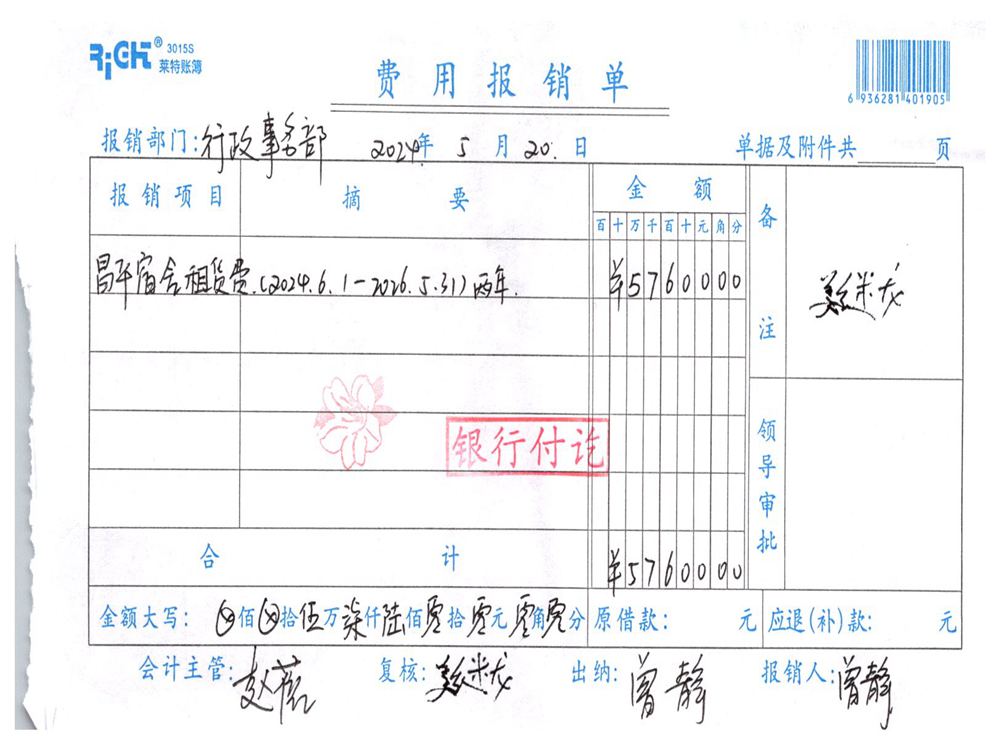 RiGHT® 3015S
莱特账簿
费用报销单
6 936281 401905
报销部门:行政事务部 2024年 5月20日 单据及附件共 页
报销项目 摘要 金额 备注
百十万千百十元角分
昌平宿舍租赁费(2024.6.1-2026.5.31)两年. ¥5760000
米龙
银行付讫
领导审批
合计 ¥5760000
金额大写: ⊗佰⊗拾伍万柒仟陆佰零拾零元零角零分 原借款: 元 应退(补)款: 元
会计主管:赵蓓 复核:米龙 出纳:曾静 报销人:曾静